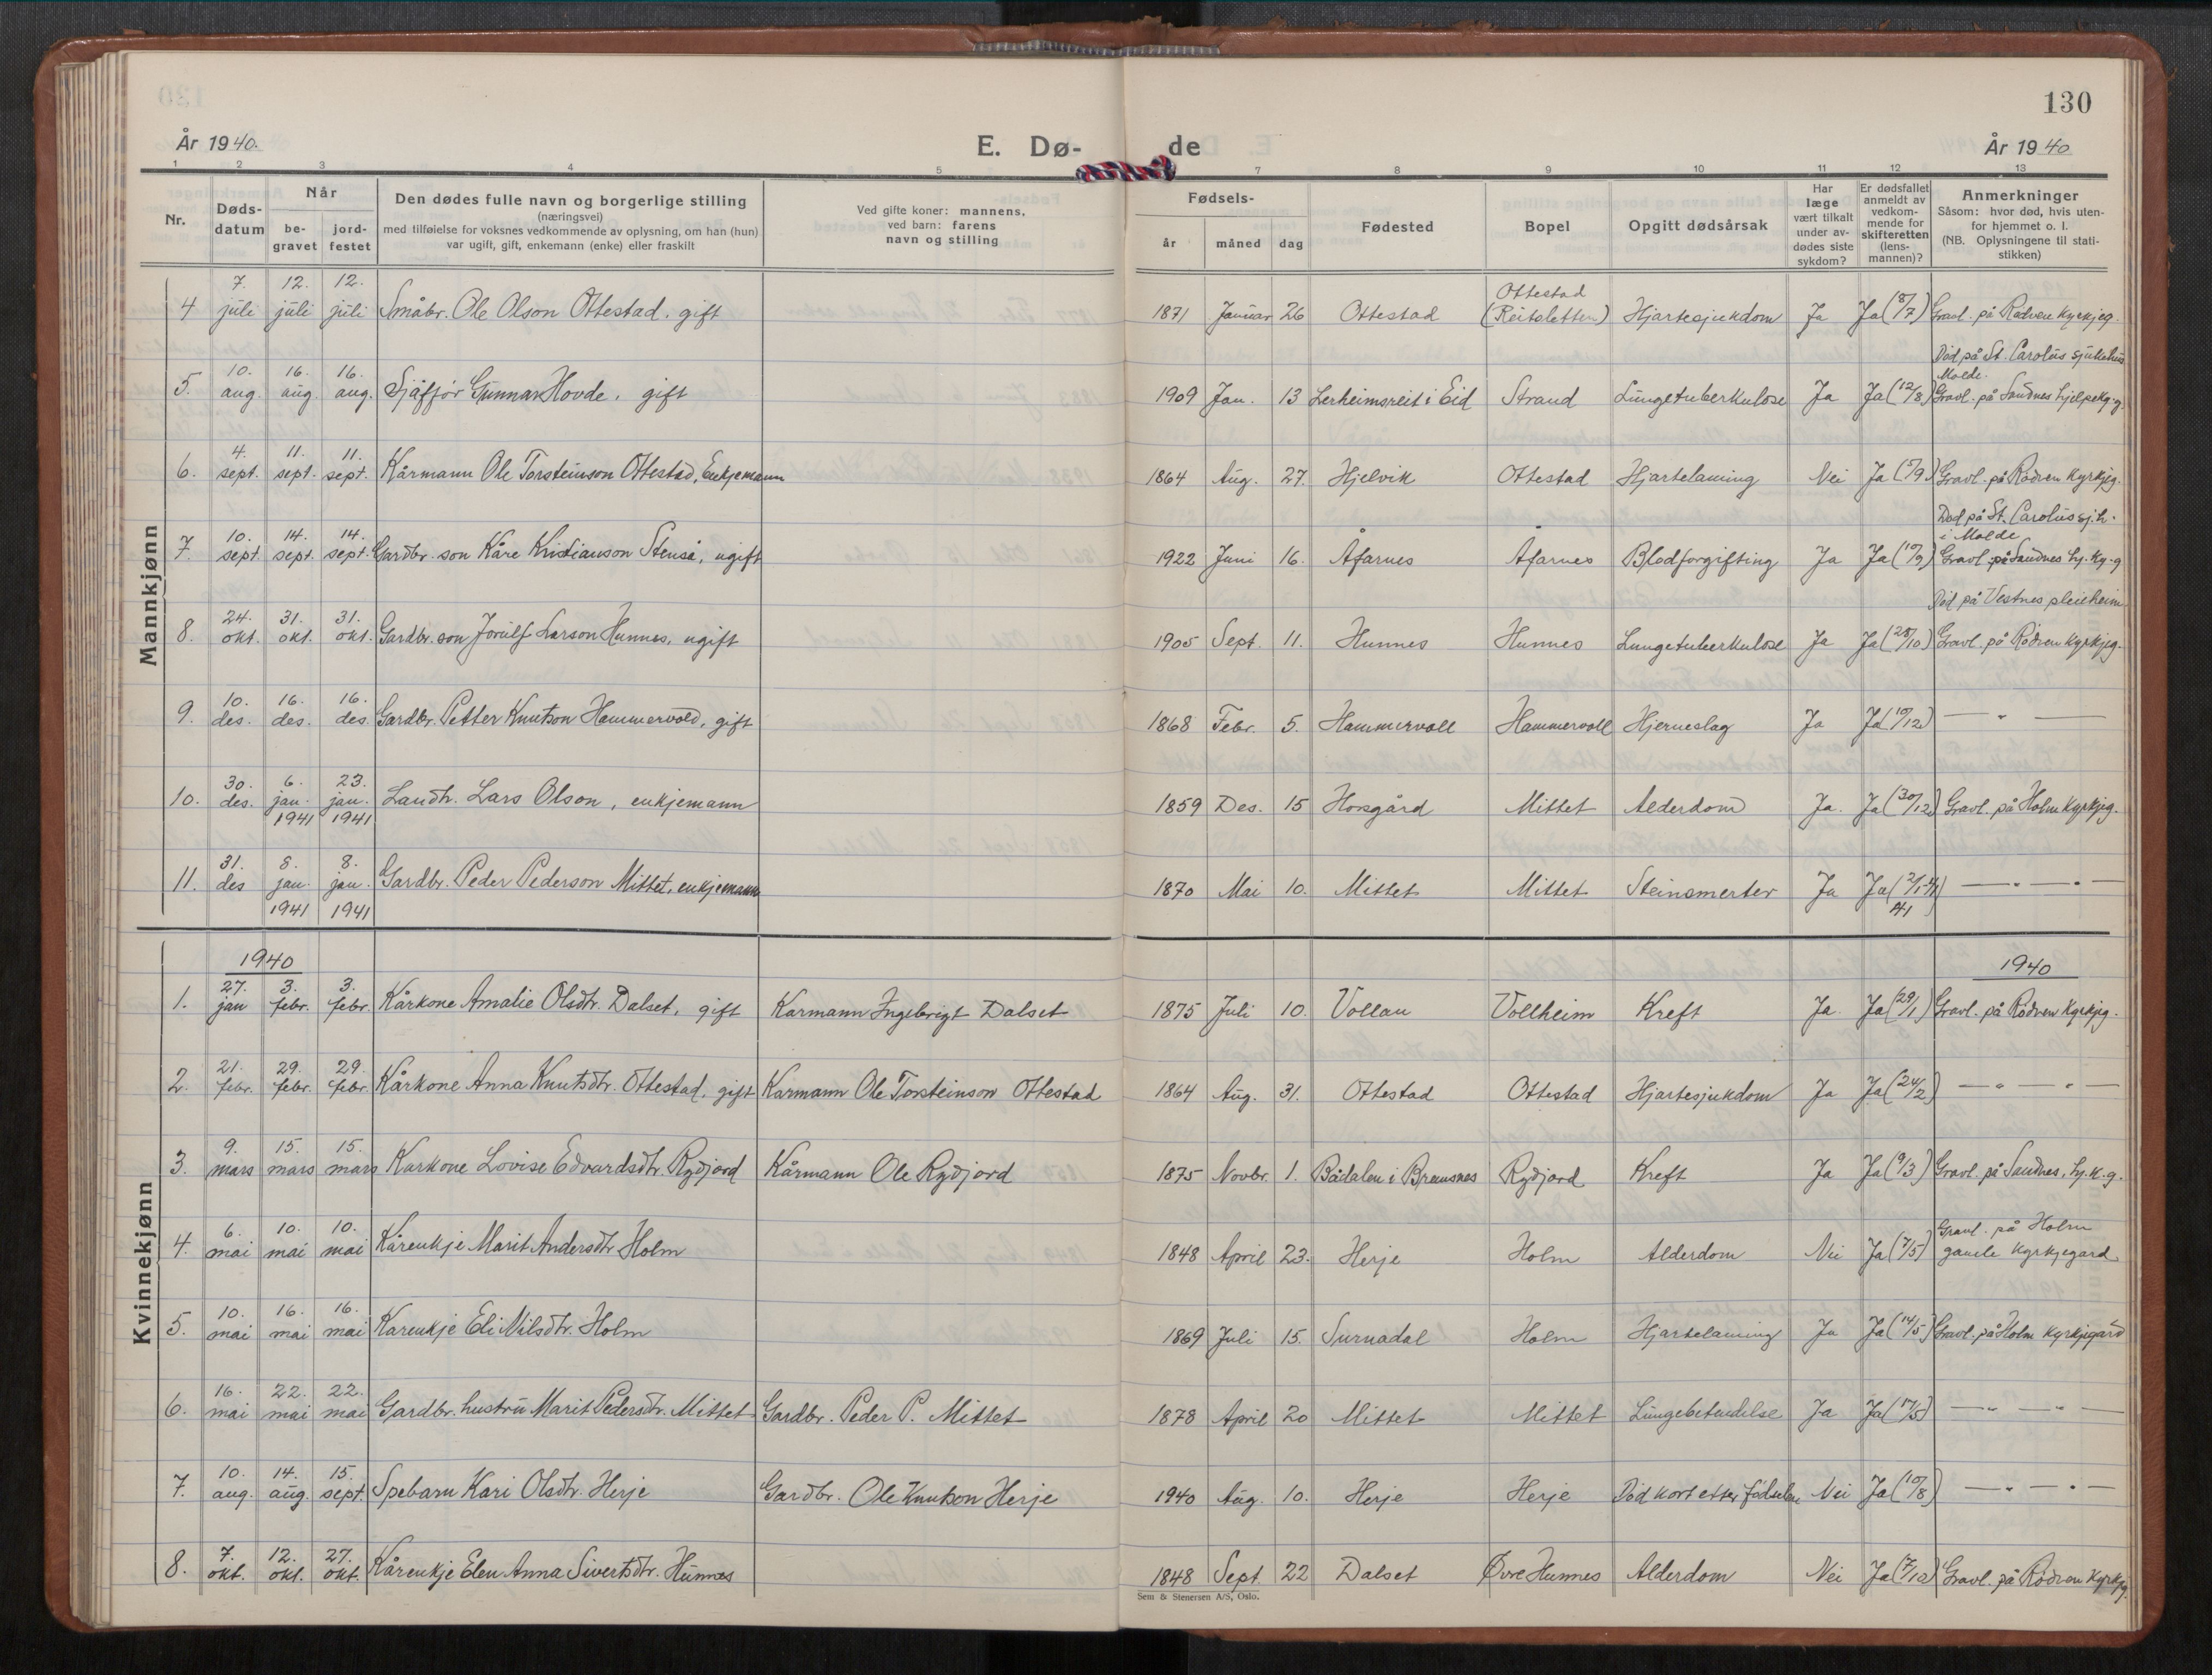 130
År 1940.
E. Dø-
de
År 1940
1 2 3 4 5 7 8 9 10 11 12 13
Nr.
Døds-
datum
Når
be-
gravet
jord-
festet
Den dødes fulle navn og borgerlige stilling
(næringsvei)
med tilføielse for voksnes vedkommende av oplysning, om han (hun)
var ugift, gift, enkemann (enke) eller fraskilt
Ved gifte koner: mannens,
ved barn: farens
navn og stilling
Fødsels-
år måned dag
Fødested
Bopel
Opgitt dødsårsak
Har
læge
vært tilkalt
under av-
dødes siste
sykdom?
Er dødsfallet
anmeldt av
vedkom-
mende for
skifteretten
(lens-
mannen)?
Anmerkninger
Såsom: hvor død, hvis uten-
for hjemmet o. l.
(NB. Oplysningene til stati-
stikken)
Mannkjønn
4 7. juli 12. juli 12. juli Småbr. Ole Olson Ottestad, gift 1871 Januar 26 Ottestad Ottestad (Reitsletten) Hjartesjukdom Ja Ja (8/7) Gravl. på Rødven Kyrkjeg.
5. 10. aug. 16. aug. 16. aug. Sjåfør Gunnar Hovde, gift 1909 Jan. 13 Lerheimsreit i Eid Strand Lungetuberkulose Ja Ja (12/8) Død på St. Carolus sjukehus
Molde.
Gravl. på Sandnes hjelpekg.g.
6. 4. sept. 11. sept. 11. sept. Kårmann Ole Torsteinson Ottestad, Enkjemann 1864 Aug. 27. Hjelvik Ottestad Hjartelaming Nei Ja (5/9) Gravl. på Rødven Kyrkjeg.
7. 10. sept. 14. sept. 14. sept. Gardbr. son Kåre Kristianson Stenså, ugift 1922 Juni 16. Åfarnes Åfarnes Blodforgifting Ja Ja (10/9) Død på St. Carolus sj.h.
i Molde
Gravl. på Sandnes hj. Ky.g
8. 24. okt. 31. okt. 31. okt. Gardbr. son Jorulf Larson Hunnes, ugift 1905 Sept. 11. Hunnes Hunnes Lungetuberkulose Ja Ja (28/10) Død på Vestnes pleieheim
Gravl. på Rødven Kyrkjeg.
9. 10. des. 16. des. 16. des. Gardbr. Petter Knutson Hammervold, gift 1868 Febr. 5. Hammervoll Hammervoll Hjerneslag Ja Ja (10/12) — " —
10. 30. des. 6. jan. 1941 23. jan. 1941 Landh. Lars Olson, enkjemann 1859 Des. 15 Horsgård Mittet Alderdom Ja. Ja (30/12) Gravl. på Holm Kyrkjeg.
11. 31. des 8. jan. 1941 8. jan. 1941 Gardbr. Peder Pederson Mittet, enkjemann 1870 Mai 10. Mittet Mittet Steinsmerter Ja Ja (2/1-41) — " — " —
Kvinnekjønn
1940
1940
1. 27. jan 3. febr. 3. febr. Kårkone Amalie Olsdtr. Dalset, gift Karmann Ingebrigt Dalset 1875 Juli 10. Vollan Vollheim Kreft Ja. Ja (29/1) Gravl. på Rødven Kyrkjeg.
2. 21. febr. 29. febr. 29. febr. Kårkone Anna Knutsdtr. Ottestad, gift Karmann Ole Torsteinson Ottestad 1864 Aug. 31. Ottestad Ottestad Hjartesjukdom Ja Ja (24/2) — " — " —
3. 9. mars 15. mars 15. mars Karkone Lovise Edvardsdtr. Rydjord Kårmann Ole Rydjord 1875 Novbr. 1. Bådalen i Bremsnes Rydjord Kreft Ja Ja (9/3) Gravl. på Sandnes, hj.k.g.
4. 6. mai 10. mai 10. mai Kårenkje Marit Andersdtr Holm 1848 April 23. Herje Holm Alderdom Nei Ja (7/5) Gravl. på Holm
gamle Kyrkjegard
5. 10. mai 16. mai 16. mai Karenkje Eli Nilsdtr. Holm 1869 Juli 15. Surnadal Holm Hjartelaming Ja Ja (14/5) Gravl. på Holm Kyrkjegård
6. 16. mai 22. mai 22. mai Gardbr. hustru Marit Pedersdtr. Mittet Gardbr. Peder P. Mittet 1878 April 20 Mittet Mittet Lungebetendelse Ja Ja (17/5) — " — " —
7. 10. aug. 14. aug. 15. sept. Spebarn Kari Olsdtr. Herje Gardbr. Ole Knutson Herje 1940 Aug. 10. Herje Herje Død kort etter fødselen Nei Ja (10/8) — " — " —
8. 7. okt. 12. okt. 27. okt. Kårenkje Elen Anna Sivertsdtr. Hunnes 1848 Sept. 22 Dalset Øvre Hunnes Alderdom Nei Ja (7/10) Gravl. på Rødven Kyrkjg.
Sem & Stenersen A/S, Oslo.